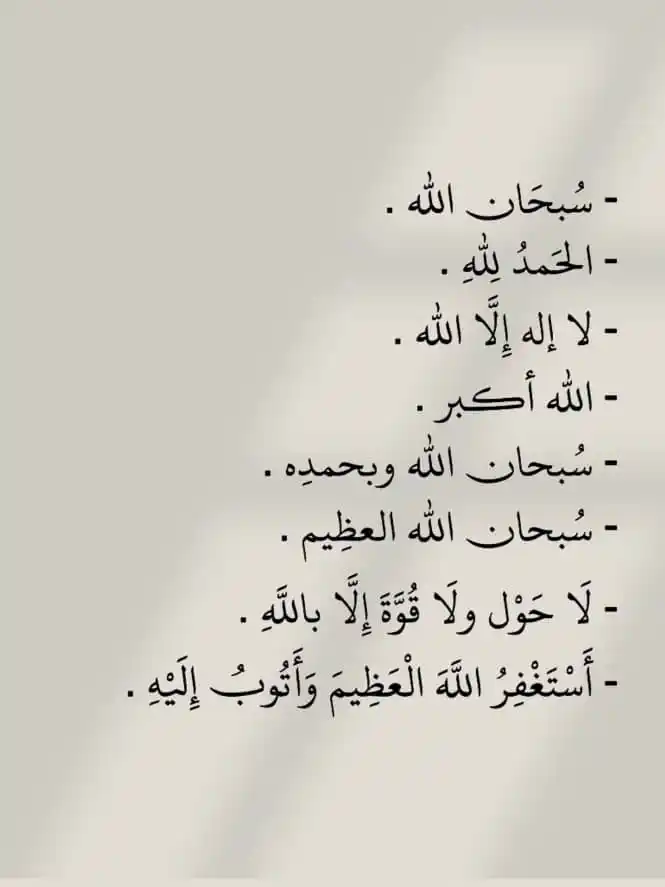 - سُبحَان الله .
- الحَمدُ لِلّٰهِ .
- لا إله إِلَّا الله .
- الله أكبر .
- سُبحان الله وبحمدِه .
- سُبحان الله العظِيم .
- لَا حَوْل ولَا قُوَّةَ إِلَّا باللَّهِ .
- أَسْتَغْفِرُ اللَّهَ الْعَظِيمَ وَأَتُوبُ إِلَيْهِ .